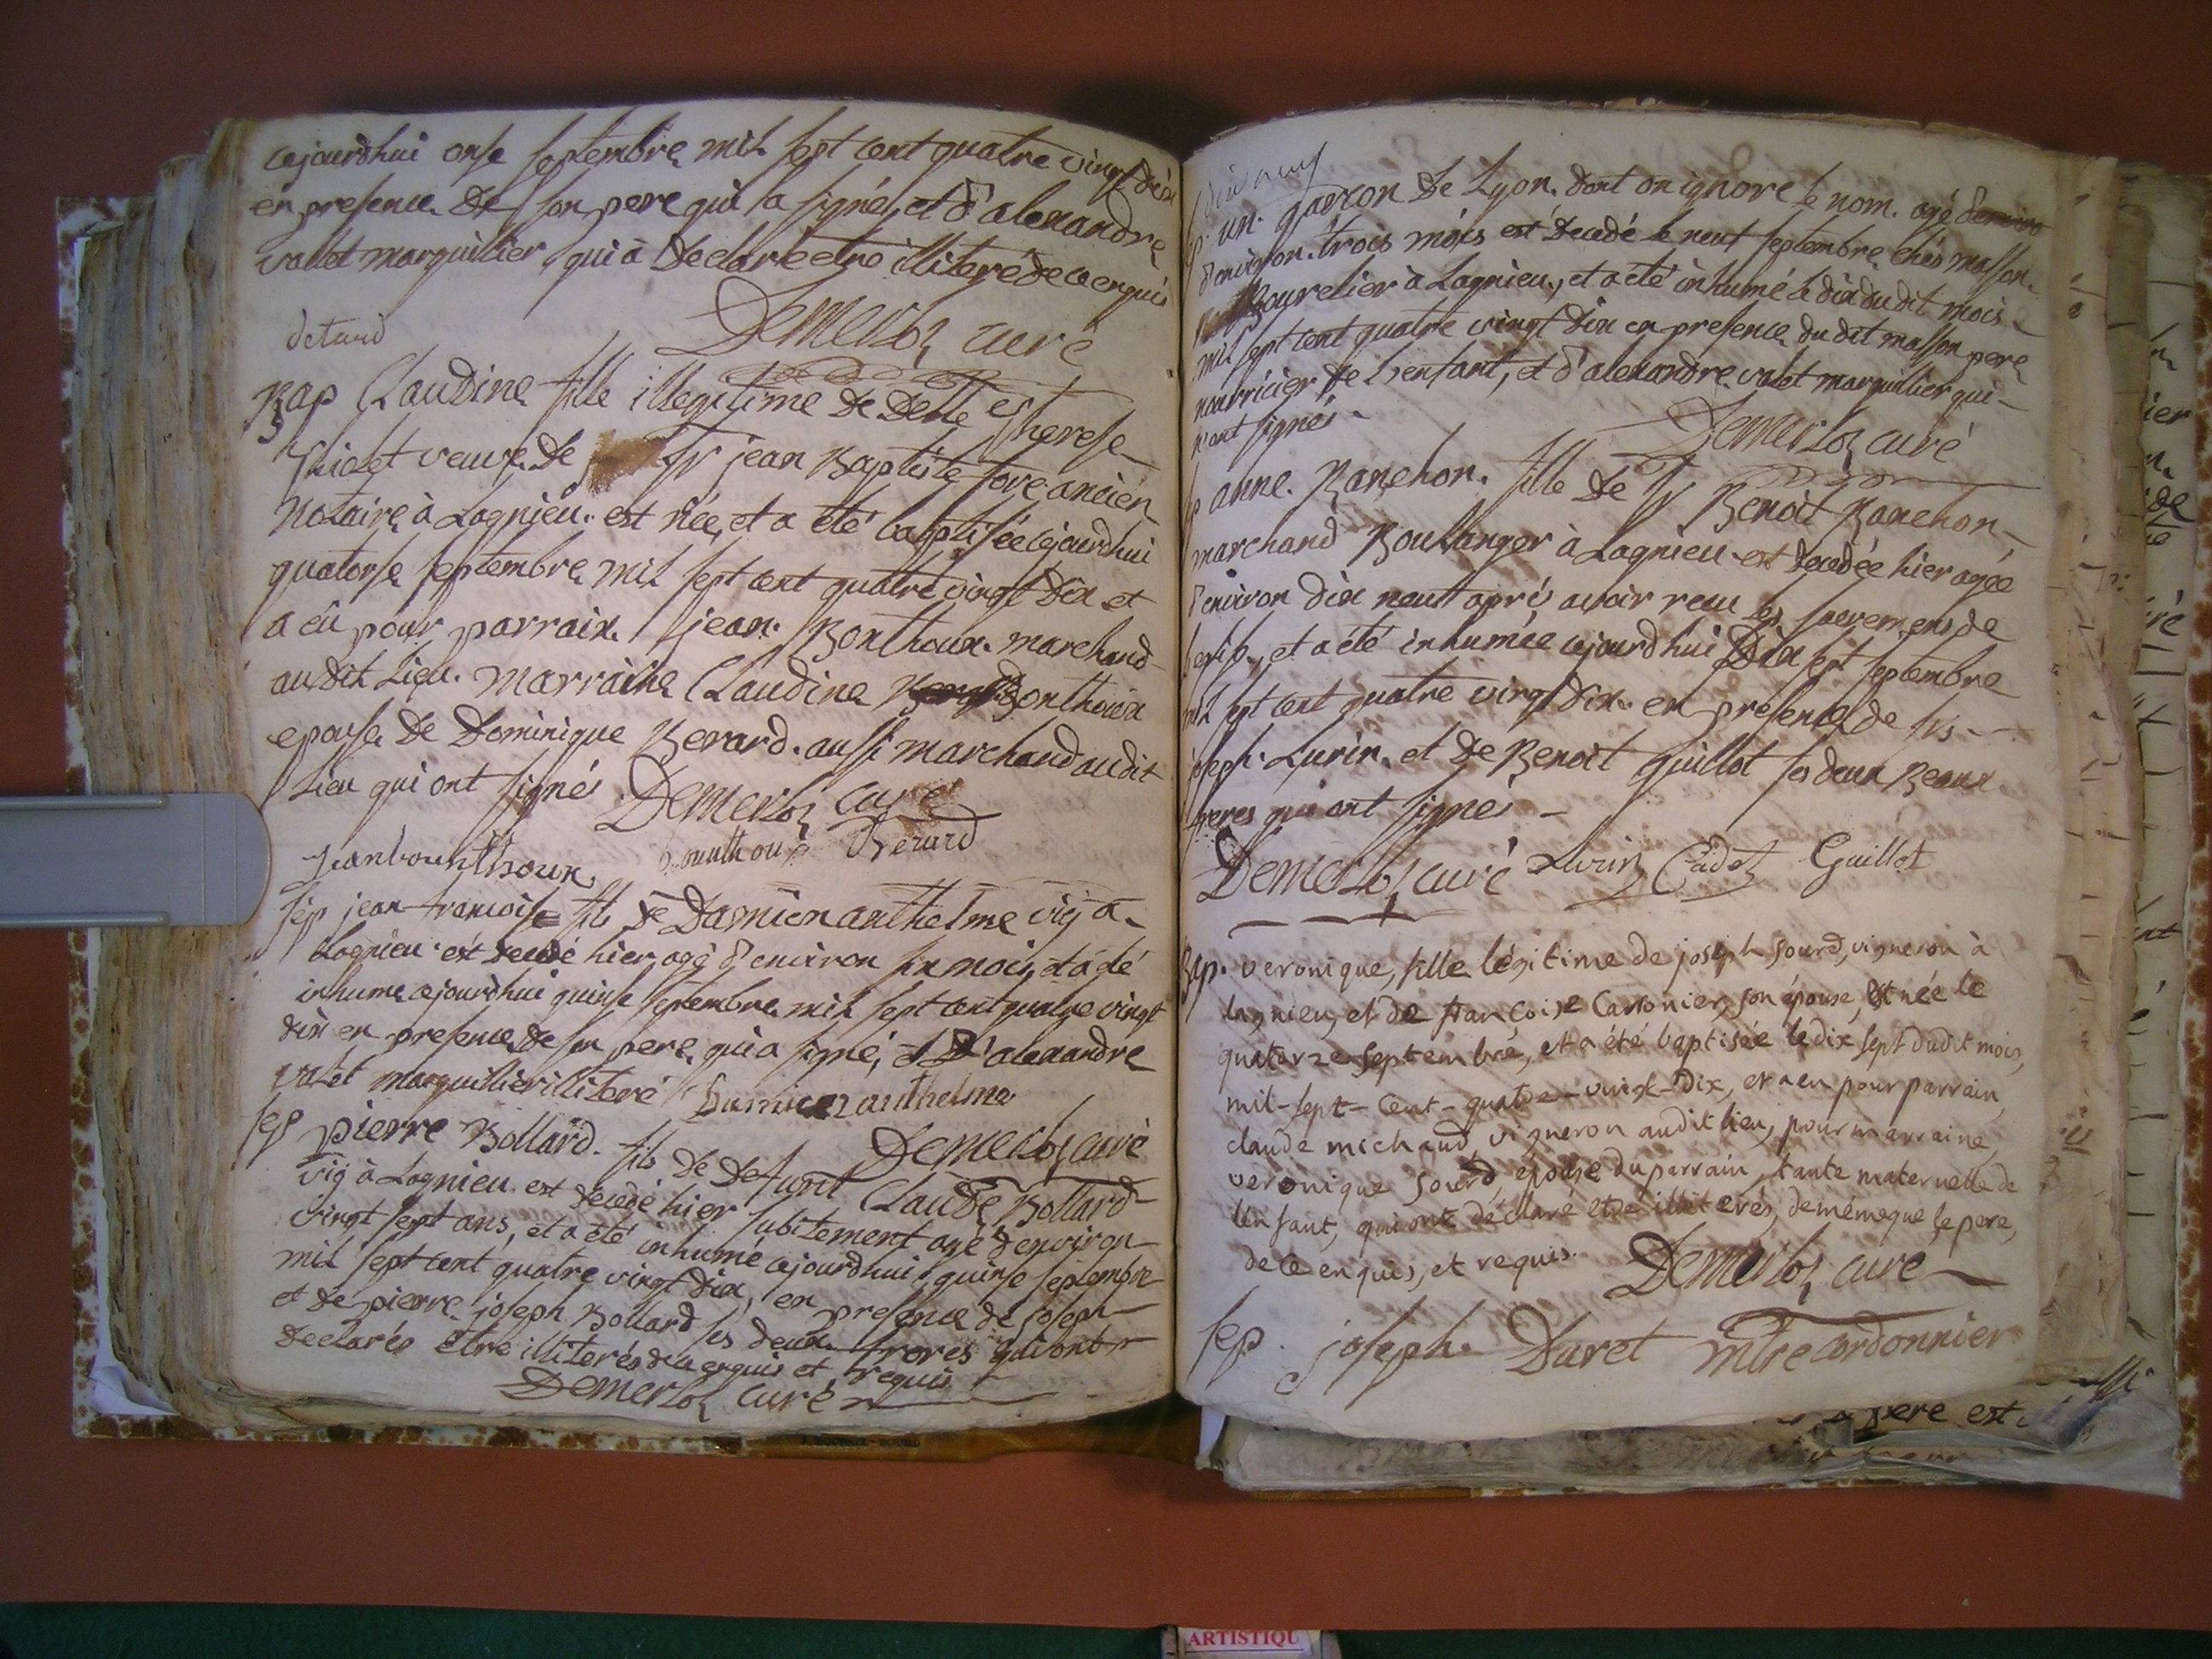 cejourdhui onse septembre mil sept cent quatre vingt dix
en presence de son pere qui a signé, et d'alexandre
vallet marguillier qui a declaré etre illiteré de ce enquis
detand Demerloz curé
Bap Claudine fille illegitime de Delle etherese
veuve de Sr jean Baptiste fore ancien
Notaire à Lagnieu. est née, et a été baptisée cejourdhui
quatorse septembre mil sept cent quatre vingt dix et
a eû pour parrain. jean. Bonthoux. marchand
audit Lieu. marraine Claudine Bonthoux
epouse de Dominique Berard. aussi marchand audit
Lieu qui ont signés Demerloz curé
jean bounthoux bounthoux Berard
sep jean francoise fils de Damien anthelme vig à
Lagnieu est decedé hier agé d'environ six mois, et a été
inhumé cejourdhui quinse septembre mil sept cent quatre vingt
dix en presence de son pere qui a signé, et d'alexandre
valet marguillier illiteré Damien anthelme
Demerloz curé
sep pierre Bollard. fils de defunt Claude Bollard
vig à Lagnieu est decedé hier subitement agé d'environ
vingt sept ans, et a été inhumé cejourdhui quinse septembre
mil sept cent quatre vingt dix, en presence de joseph
et de pierre joseph Bollard ses deux freres qui ont
declarés etre illiterés de ce enquis et requis
Demerloz curé
sp. un garzon de Lyon. dont on ignore le nom. agé
d'environ trois mois est decedé le neuf septembre chés masson
Bourelier à Lagnieu, et a été inhumé le dix du dit mois
mil sept cent quatre vingt dix en presence du dit masson pere
nourricier de l'enfant, et d'alexandre valet marguillier qui
n'ont signés
Demerloz curé
sp anne. Ranchon. fille de Sr Benoit Ranchon
marchand Boulanger à Lagnieu est decedée hier agée
d'environ dix neuf aprés avoir recu les sacremens de
l'eglise, et a été inhumée cejourdhui dix sept septembre
mil sept cent quatre vingt dix. en présence de srs
joseph Lurin. et de Benoit Guillot ses deux Beaux
freres qui ont signés
Demerloz curé Lurin Cadet Guillot
Bap. veronique, fille légitime de joseph sourd, vigneron à
lagnieu, et de francoise Carronier, son épouse, est née le
quatorze septembre, et a été baptisée le dix sept dudit mois,
mil-sept-cent-quatre-vingt-dix, et a eu pour parrain,
claude michaud, vigneron audit lieu, pour marraine,
veronique sourd épouse du parrain, tante maternelle de
l'enfant, qui ont déclaré etre illiterés, de même que le pere,
de ce enquis, et requis. Demerloz curé
sep. joseph Duret mtre cordonnier
pere est
ARTISTIQU